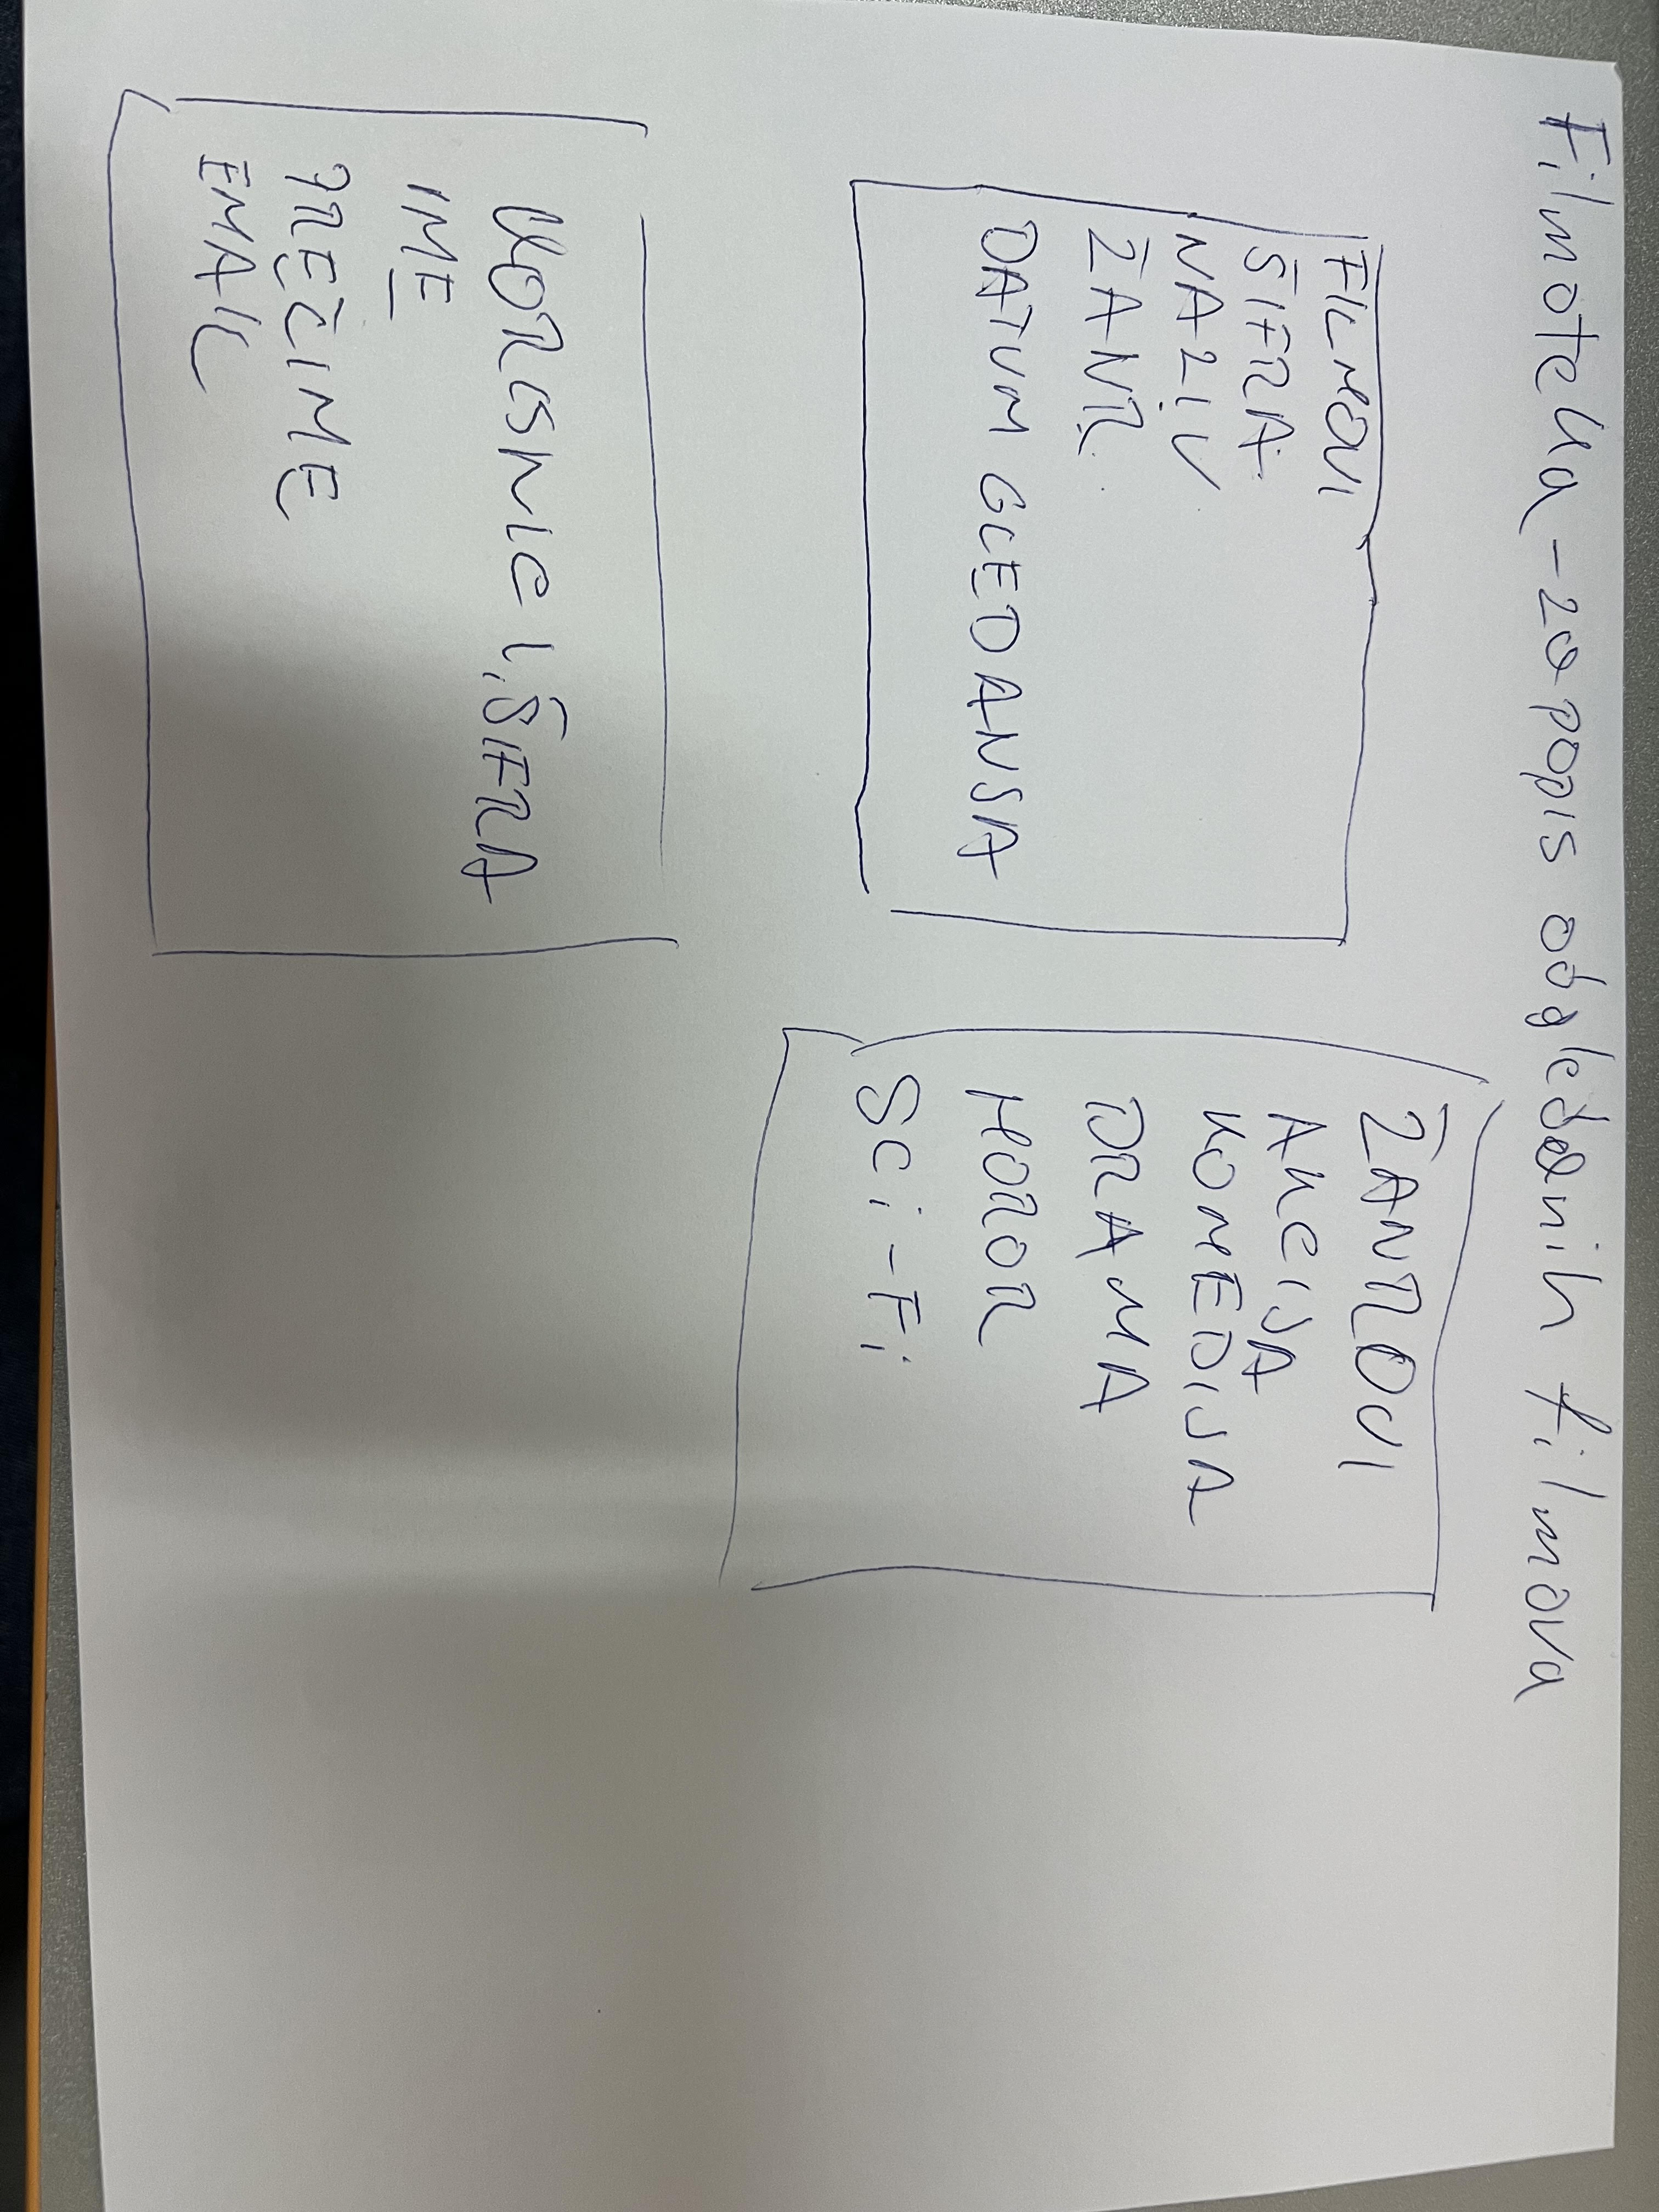 Filmoteka - za popis odgledanih filmova
FILMOVI
ŠIFRA
NAZIV
ŽANR
DATUM GLEDANJA
ŽANROVI
AKCIJA
KOMEDIJA
DRAMA
HOROR
SCi-Fi
KORISNICI, ŠIFRA
IME
PREZIME
EMAIL